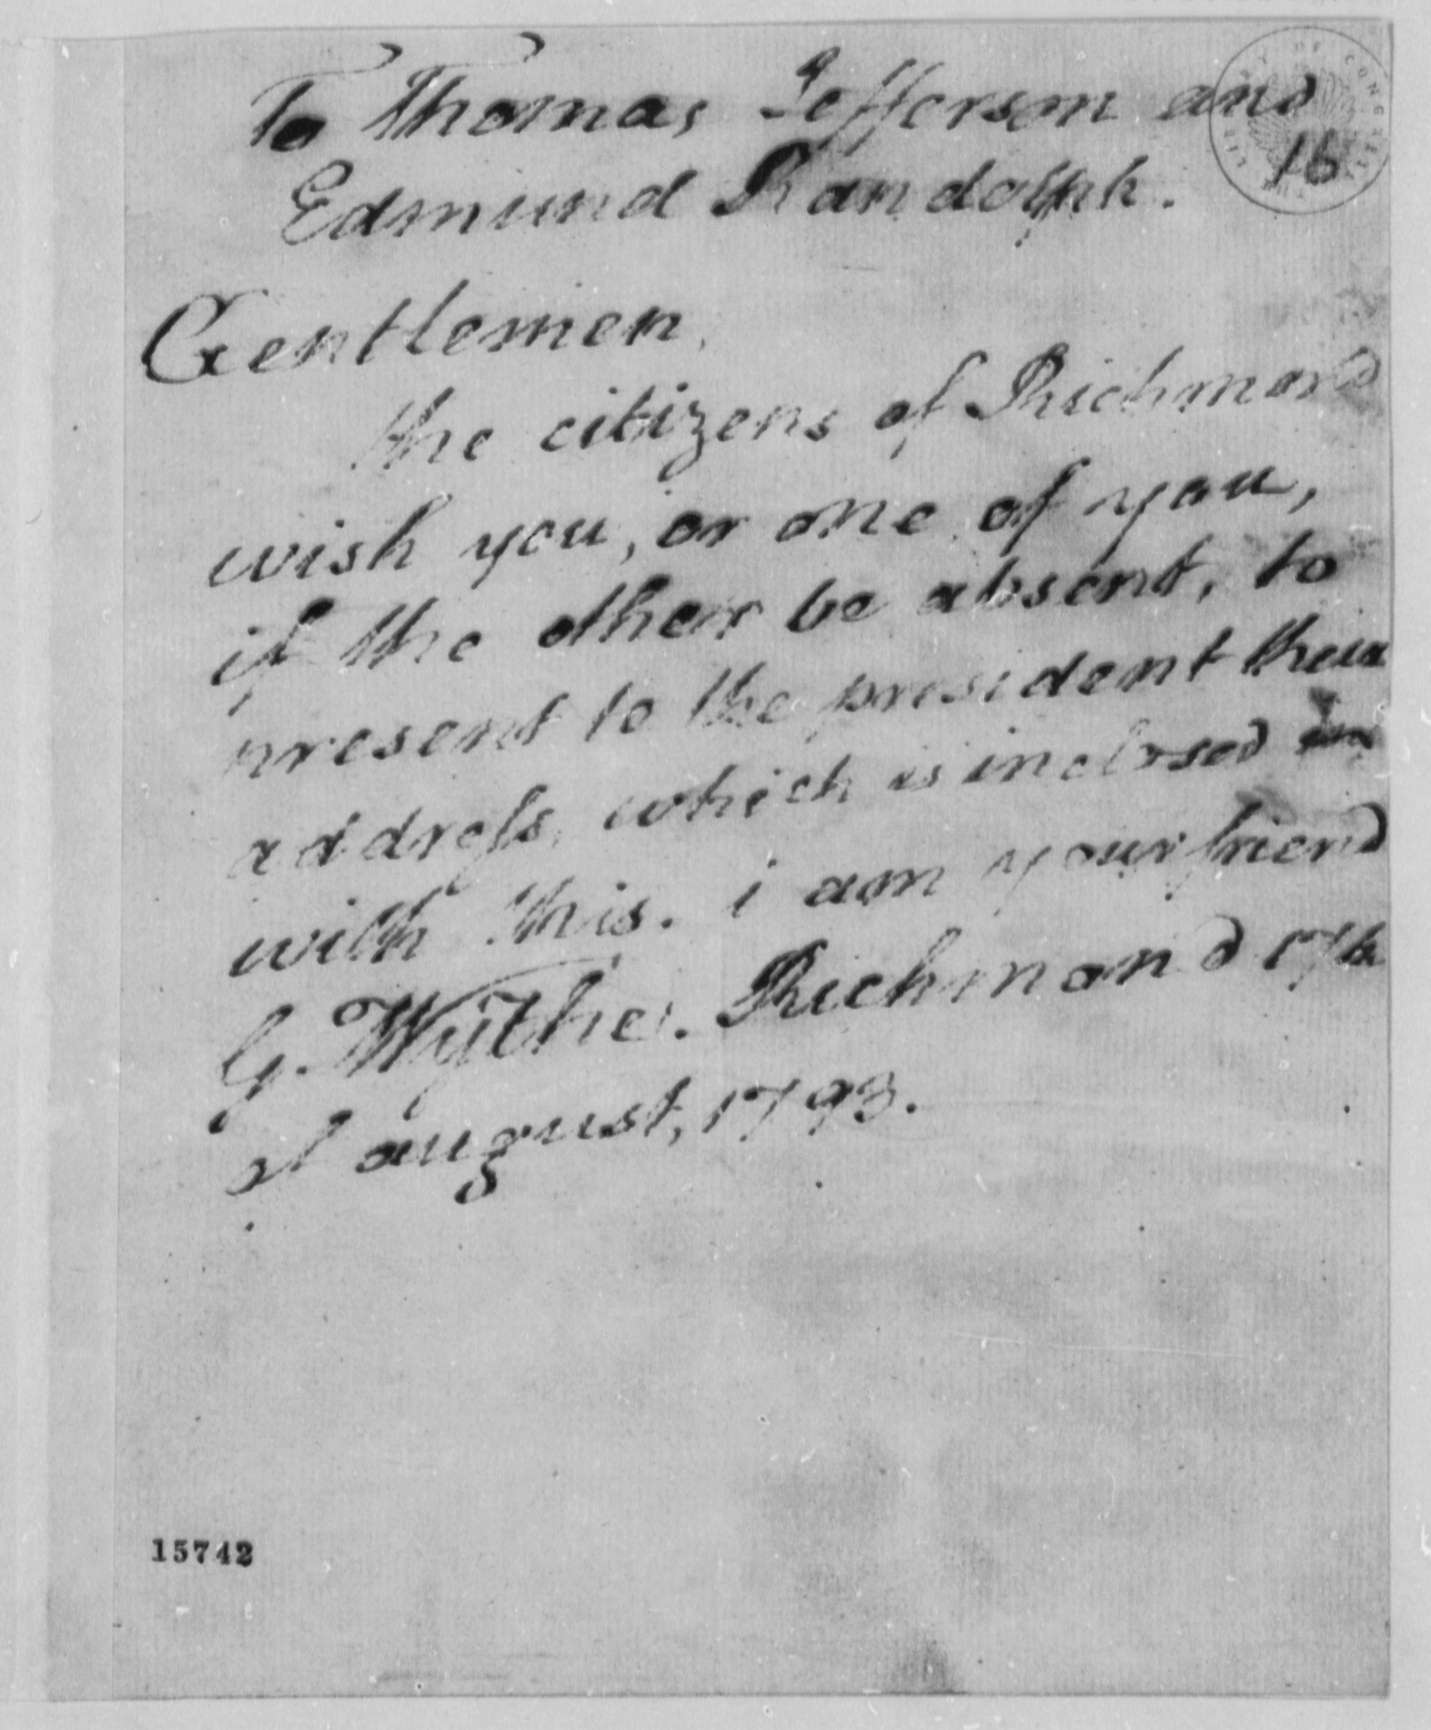 To Thomas Jefferson and
16
Edmund Randolph.
Gentlemen,
the citizens of Richmond
wish you, or one of you,
if the other be absent, to
present to the president their
addreſs, which is inclosed
with this. i am your friend
G. Wythe. Richmond 17th
of august, 1793.
15742